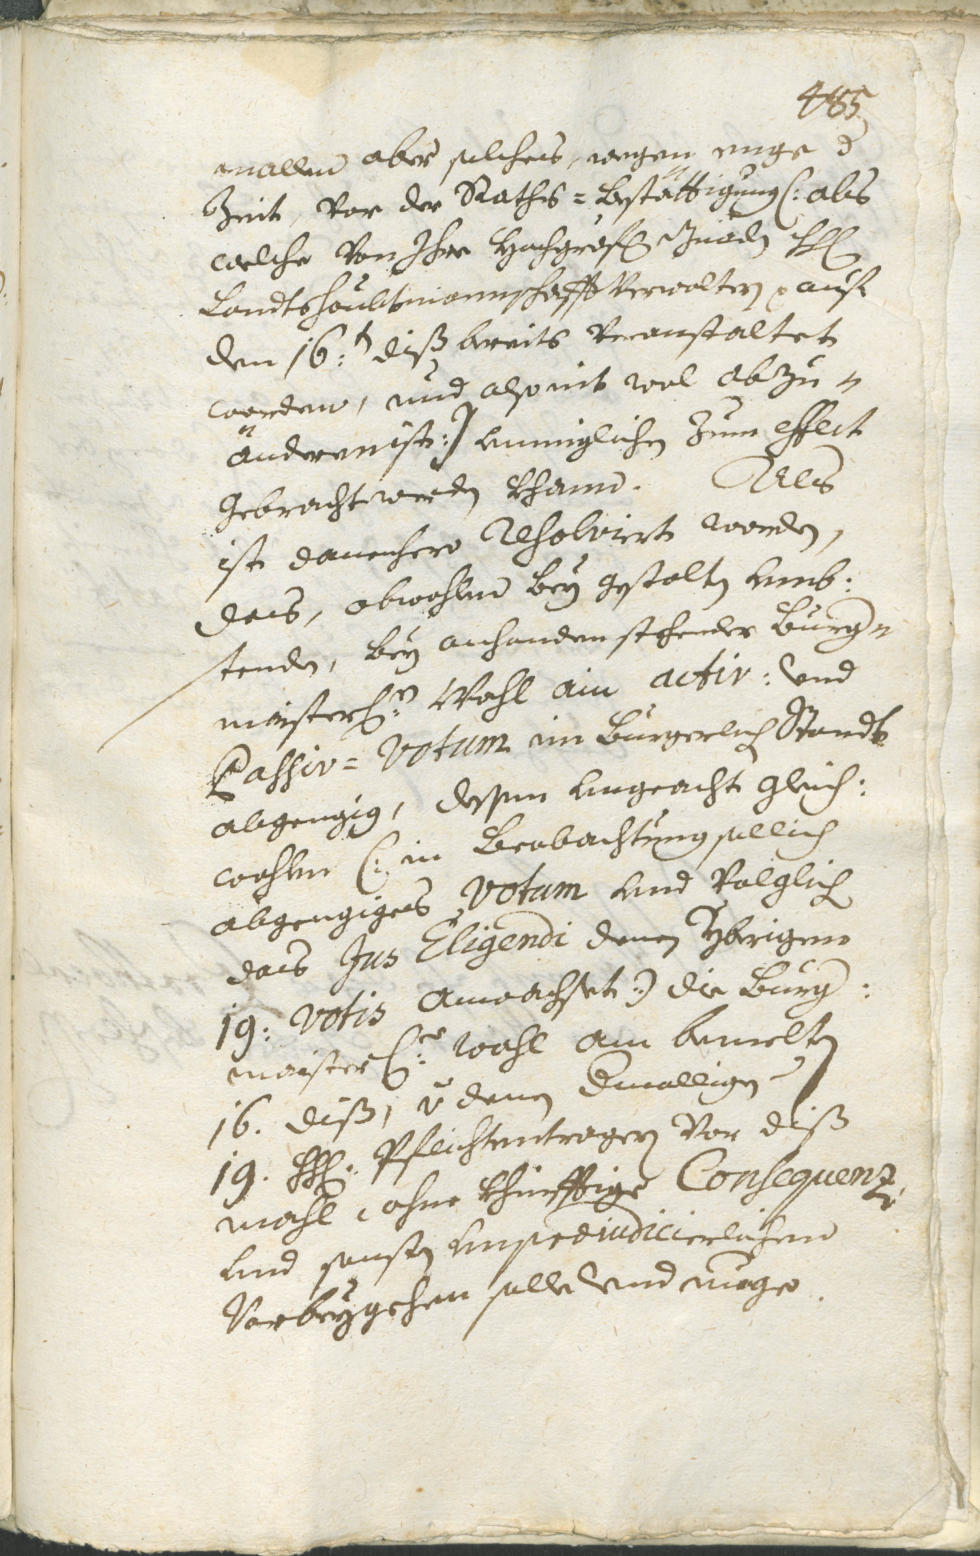 485
mallen aber solches, wegen enge d
Zeit, vor der Raths=bestättigung (: als
welche von Ihro hochgräfl Gnadn H
Landtshaubtmannschafft Verwaltern auf
den 16:t diß bereits veranstaltet
worden, und also nit wol abzu=
änderen ist :) unmiglichen zum effect
gebracht werdn khann. Als
ist danenhero Resolviert worden,
das, obwohlen bey gestaltn umb:
stenden, bey anhanden stehender Burg=
maisterl:n Wahl ain activ: und
Passiv=Votum im Burgerlich Standt
abgengig, dessen ungeacht gleich:
wohlen (: in Beobachtung sollich
abgengiges Votum und volglich
das Jus Eligendi denen Ybrigen
19: Votis anwachset :) die Burg:
maisterl:e wahl am bemeltn
16. diß, denen dmalligen
19. HH: Pflichtentragern vor diß
mahl, ohne khünfftige Consequenz,
und sonsten unpraeiudicierlichen
Vorbeygehen solle und möge.